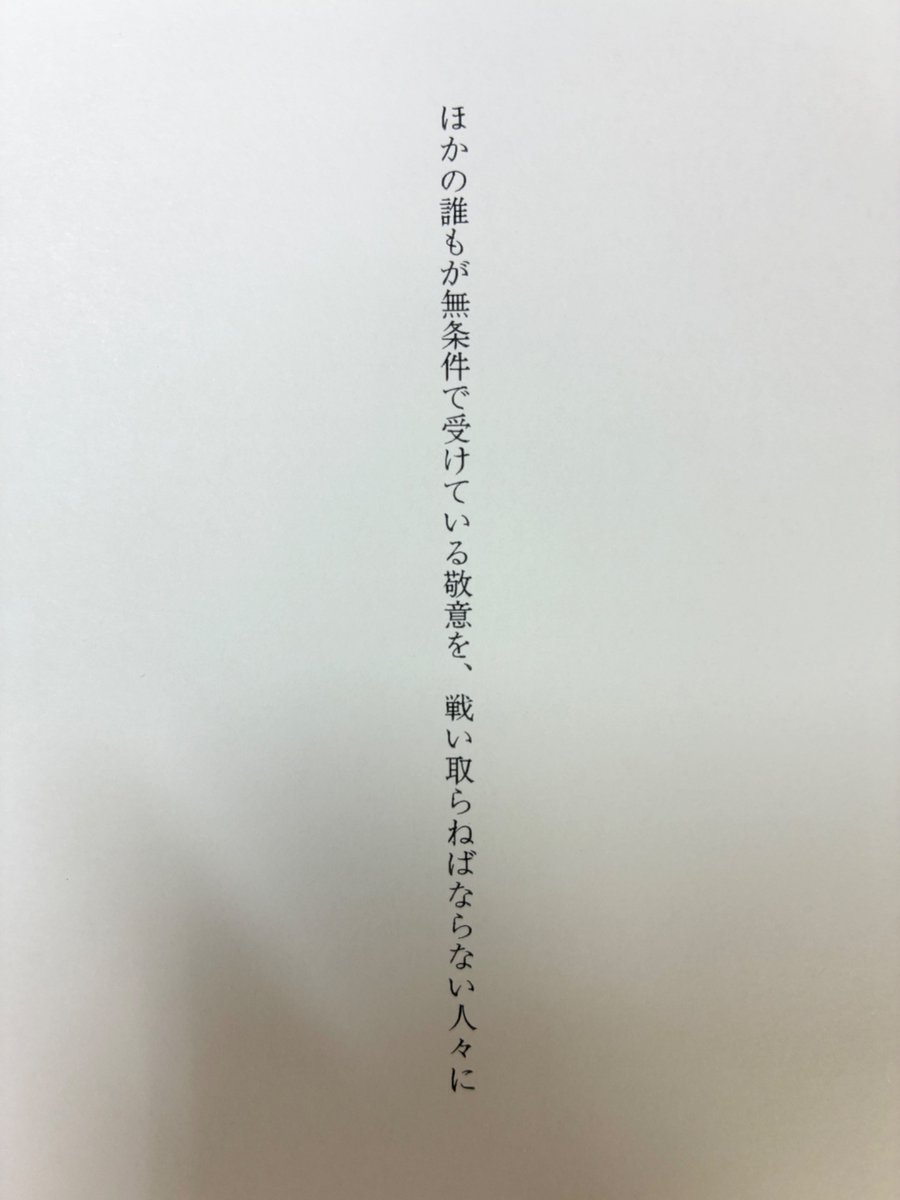 ほかの誰もが無条件で受けている敬意を、戦い取らねばならない人々に